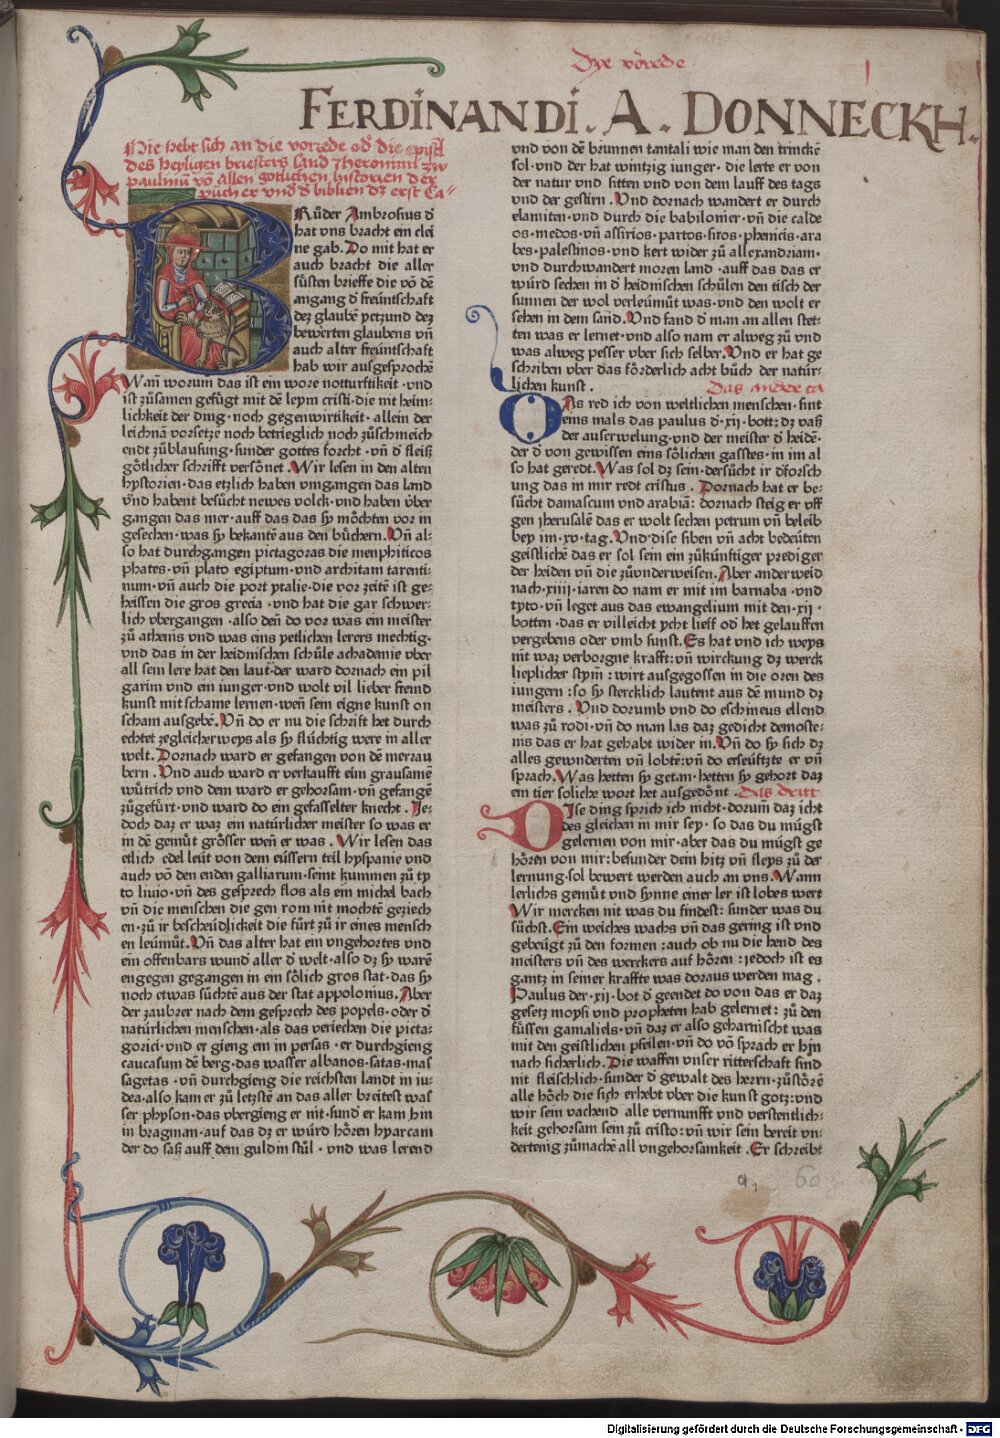 Dye vorrede
FERDINANDI. A. DONNECKH.
Hie hebt sich an die vorrede od̕ die epistl
des heyligen briesters sand Jheronimi zw
paulinū vō allen gotlichen historien der
bücher vnd d̕ biblien dz erst Ca-
BRůder Ambrosius d̕
hat vns bracht ein clei
ne gab. Do mit hat er
auch bracht die aller
süsten brieffe die vō dē
angang d̕ freüntschaft
dez glaubē yetzund dez
bewerten glaubens vñ
auch alter freüntschaft
hab wir ausgesprochē
Wañ worum das ist ein wore notturftikeit · vnd
ist zůsamen gefügt mit dē leym cristi · die nit heim-
lichkeit der ding · noch gegenwirtikeit · allein der
leichnā vorsetze noch betrieglich noch zůschmeich
endt zůblausung · sunder gottes forcht · vñ d̕ fleiß
götlicher schrifft versönet . Wir lesen in den alten
hystorien · das etzlich haben vmgangen das land
vnd habent besücht newes volck · vnd haben über
gangen das mer · auff das das sy möchten vor in
gesechen · was sy bekantē aus den büchern. Vñ al-
so hat durchgangen pictagoras die menphiticos
phates · vñ plato egiptum · vnd architam tarenti-
num · vñ auch die port ytalie · die vor zeitē ist ge-
heissen die gros grecia · vnd hat die gar schwer-
lich vbergangen · also deñ do vor was ein meister
zů athenis vnd was eins yetlichen lerers mechtig ·
vnd das in der heidnischen schůle achademie vber
all sein lere hat den laut · der ward dornach ein pil
garim vnd ein iunger · vnd wolt vil lieber fremd
kunst mit schame lernen · weñ sein eigne kunst on
scham ausgebē. Vñ do er nu die schrift het durch
echtet zegleicherweys als sy flüchtig were in aller
welt. Dornach ward er gefangen von dē merrau
bern . Vnd auch ward er verkaufft eim grausamē
wůtrich vnd dem ward er gehorsam · vñ gefangē
zůgefürt · vnd ward do ein gefasselter knecht. Je-
doch daz er waz ein natürlicher meister so was er
in dē gemůt grösser weñ er was . Wir lesen das
etlich edel leüt von dem eüssern teil hyspanie vnd
auch vō den enden galliarum · seint kummen zů ty
to liuio · vñ des gesprech flos als ein michel bach
vñ die menschen die gen rom nit mochtē geziech
en · zů ir bescheüdlickeit die fürt zů ir eines mensch
en leümůt. Vñ das alter hat ein vngehortes vnd
ein offenbars wund̕ aller d̕ welt · also dz sy warē
engegen gegangen in ein sölich gros stat · das sy
noch etwas süchtē aus der stat appolonius. Aber
der zaubrer nach dem gesprech des popels · oder d̕
natürlichen menschen · als das veriechen die picta-
gorici · vnd er gieng ein in persas · er durchgieng
caucasum dē berg · das wasser albanos · satas · mas
sagetas · vñ durchgieng die reichsten landt in iu-
dea · also kam er zů letzstē an das aller breitest was
ser physon · das vbergieng er nit · sund̕ er kam hin
in bragman · auf das dz er würd hören hyarcam
der do saß auff dem guldin stůl · vnd was lerend
vnd von dē brunnen tantali wie man den trinckē
sol · vnd der hat wintzig iunger · die lerte er von
der natur vnd sitten vnd von dem lauff des tags
vnd der gestirn . Vnd dornach wandert er durch
elamiten · vnd durch die babilonier · vñ die calde
os · medos · vñ assirios · partos · siros · phenicis · ara
bes · palestinos · vnd kert wider zů allexandriam ·
vnd durchwandert moren land · auff das das er
würd sechen in d̕ heidnischen schůlen den tisch der
sunnen der wol verleümüt was · vnd den wolt er
sehen in dem sand. Vnd fand d̕ man an allen stet-
ten was er lernet · vnd also nam er alweg zů vnd
was alweg pesser vber sich selber. Vnd er hat ge
schriben vber das förderlich acht büch der natür-
lichen kunst . Das ander ca
DAs red ich von weltlichen menschen · sint
eins mals das paulus d̕ · xij · bott : dz vaß
der auserwelung · vnd der meister d̕ heidē-
der d̕ von gewissen eins sölichen gasstes · in im al
so hat geredt. Was sol dz sein · dersücht ir d̕forsch
ung das in mir redt cristus . Dornach hat er be-
sücht damascum vnd arabiā : dornach steig er vff
gen jherusalē das er wolt sechen petrum vñ beleib
bey im · xv · tag. Vnd dise siben vñ acht bedeüten
geistlichē das er sol sein ein zůkünftiger prediger
der heiden vñ die zůvnderweisen. Aber anderweid
nach · xiiij · iaren do nam er mit im barnaba · vnd
tyto · vñ leget aus das ewangelium mit den · xij ·
botten · das er villeicht ycht lieff od̕ het gelauffen
vergebens oder vmb sunst. Es hat vnd ich weys
nit waz verborgne krafft : vñ wirckung dz werck
lieplicher stym̄ : wirt ausgegossen in die oren des
iungern : so sy stercklich lautent aus dē mund dz
meisters . Vnd dorumb vnd do eschineus ellend
was zů rodi · vñ do man las daz gedicht demoste-
nis das er hat gehabt wider in. Vñ do sy sich dz
alles gewnderten vñ lobtē : vñ do erseüftzte er vñ
sprach. Was hetten sy getan · hetten sy gehort daz
ein tier soliche wort het ausgedōnt . Das dritt
DIse ding sprich ich nicht · dorum̄ daz icht
des gleichen in mir sey · so das du mügst
gelernen von mir · aber das du mügst ge
hören von mir : besunder dein hitz vñ fleys zů der
lernung · sol bewert werden auch an vns. Wann
lerlichs gemüt vnd synne einer ler ist lobes wert
Wir mercken nit was du findest : sunder was du
süchst. Ein weiches wachs vñ das gering ist vnd
gebeügt zů den formen : auch ob nu die hend des
meisters vñ des werckers auf hören : jedoch ist es
gantz in seiner kraffte was doraus werden mag .
Paulus der · xij · bot d̕ geendet do von das er daz
gesetz moysi vnd propheten hab gelernet : zů den
füssen gamaliels · vñ daz er also geharnischt was
mit den geistlichen pfeilen · vñ do vō sprach er hin
nach sicherlich. Die waffen vnser ritterschaft sind
nit fleischlich · sunder d̕ gewalt des herrn · zůstörē
alle höch die sich erhebt vber die kunst gotz : vnd
wir sein vachend alle vernunfft vnd verstentlich-
keit gehorsam sein zů cristo : vñ wir sein bereit vn-
dertenig zůmachē all vngehorsamkeit . Er schreibt
Digitalisierung gefördert durch die Deutsche Forschungsgemeinschaft - DFG